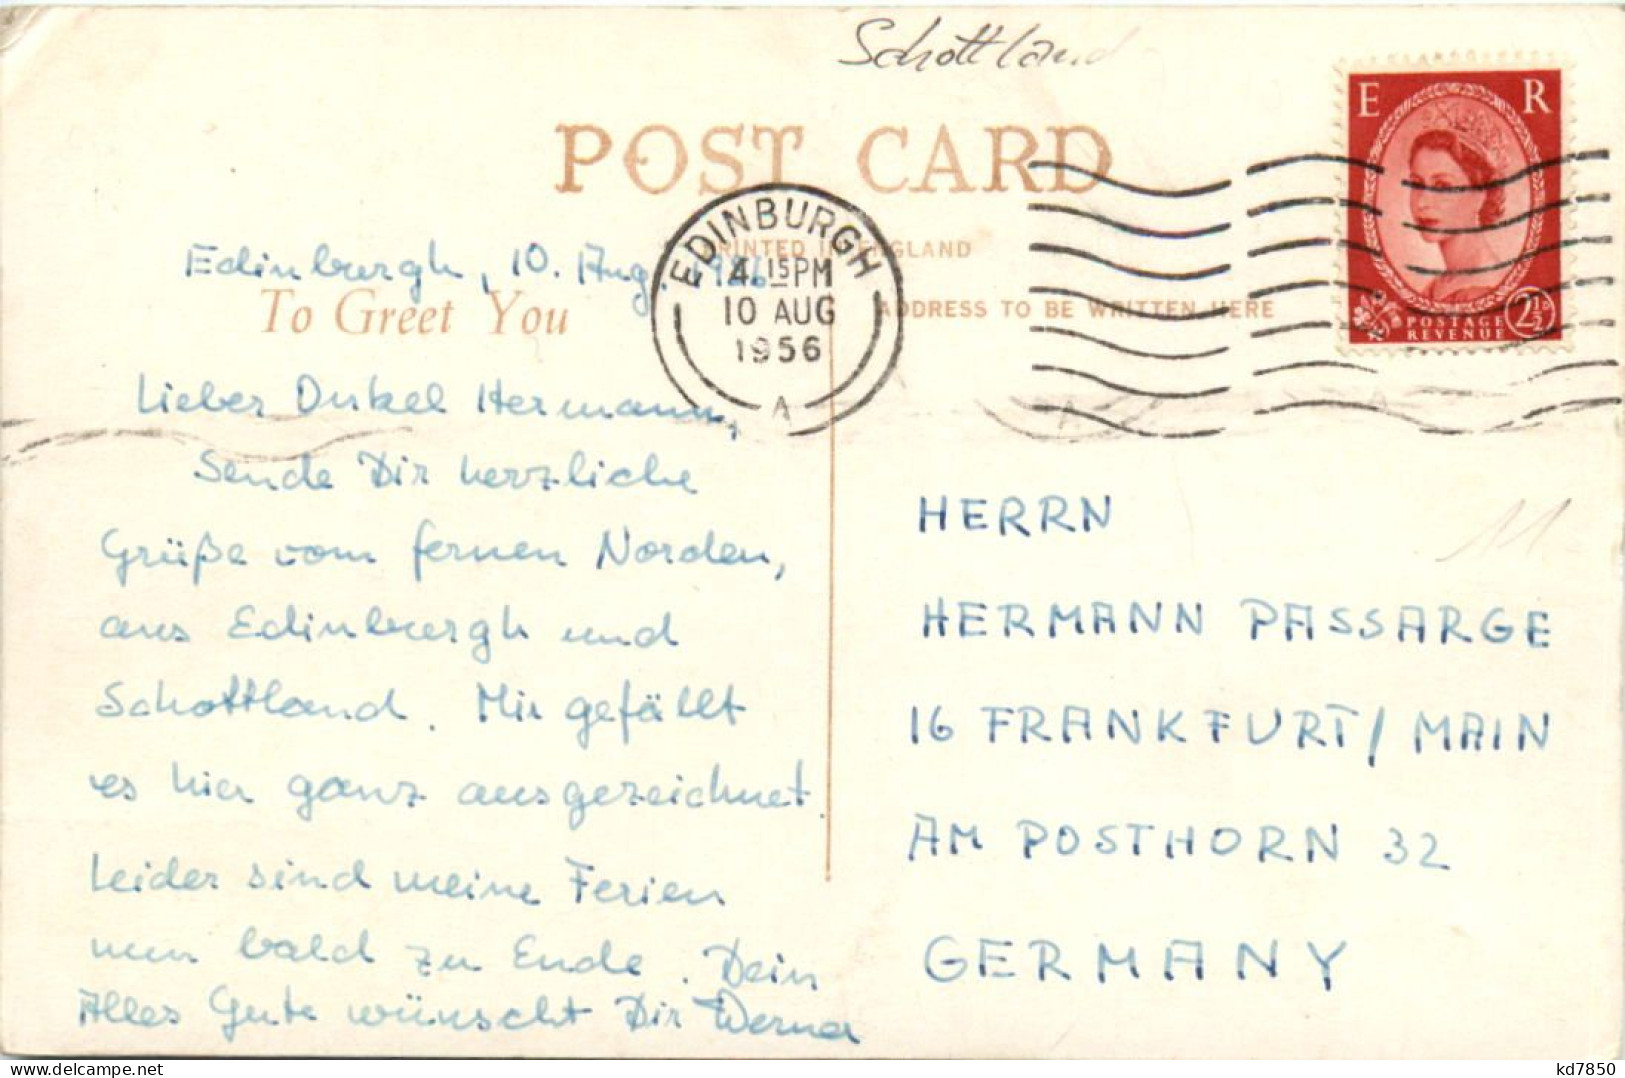 Schottland
E R
POST CARD
PRINTED IN ENGLAND
ADDRESS TO BE WRITTEN HERE
To Greet You
POSTAGE
REVENUE
2½D
EDINBURGH
4.15PM
10 AUG
1956
A
Edinburgh, 10. Aug. 1956
Lieber Onkel Hermann,
sende Dir herzliche
Grüße vom fernen Norden,
aus Edinburgh und
Schottland. Mir gefällt
es hier ganz ausgezeichnet.
Leider sind meine Ferien
nun bald zu Ende. Dein
Alles Gute wünscht Dir Werner
HERRN
HERMANN PASSARGE
16 FRANKFURT/MAIN
AM POSTHORN 32
GERMANY
11
hip-post.com
kd7850